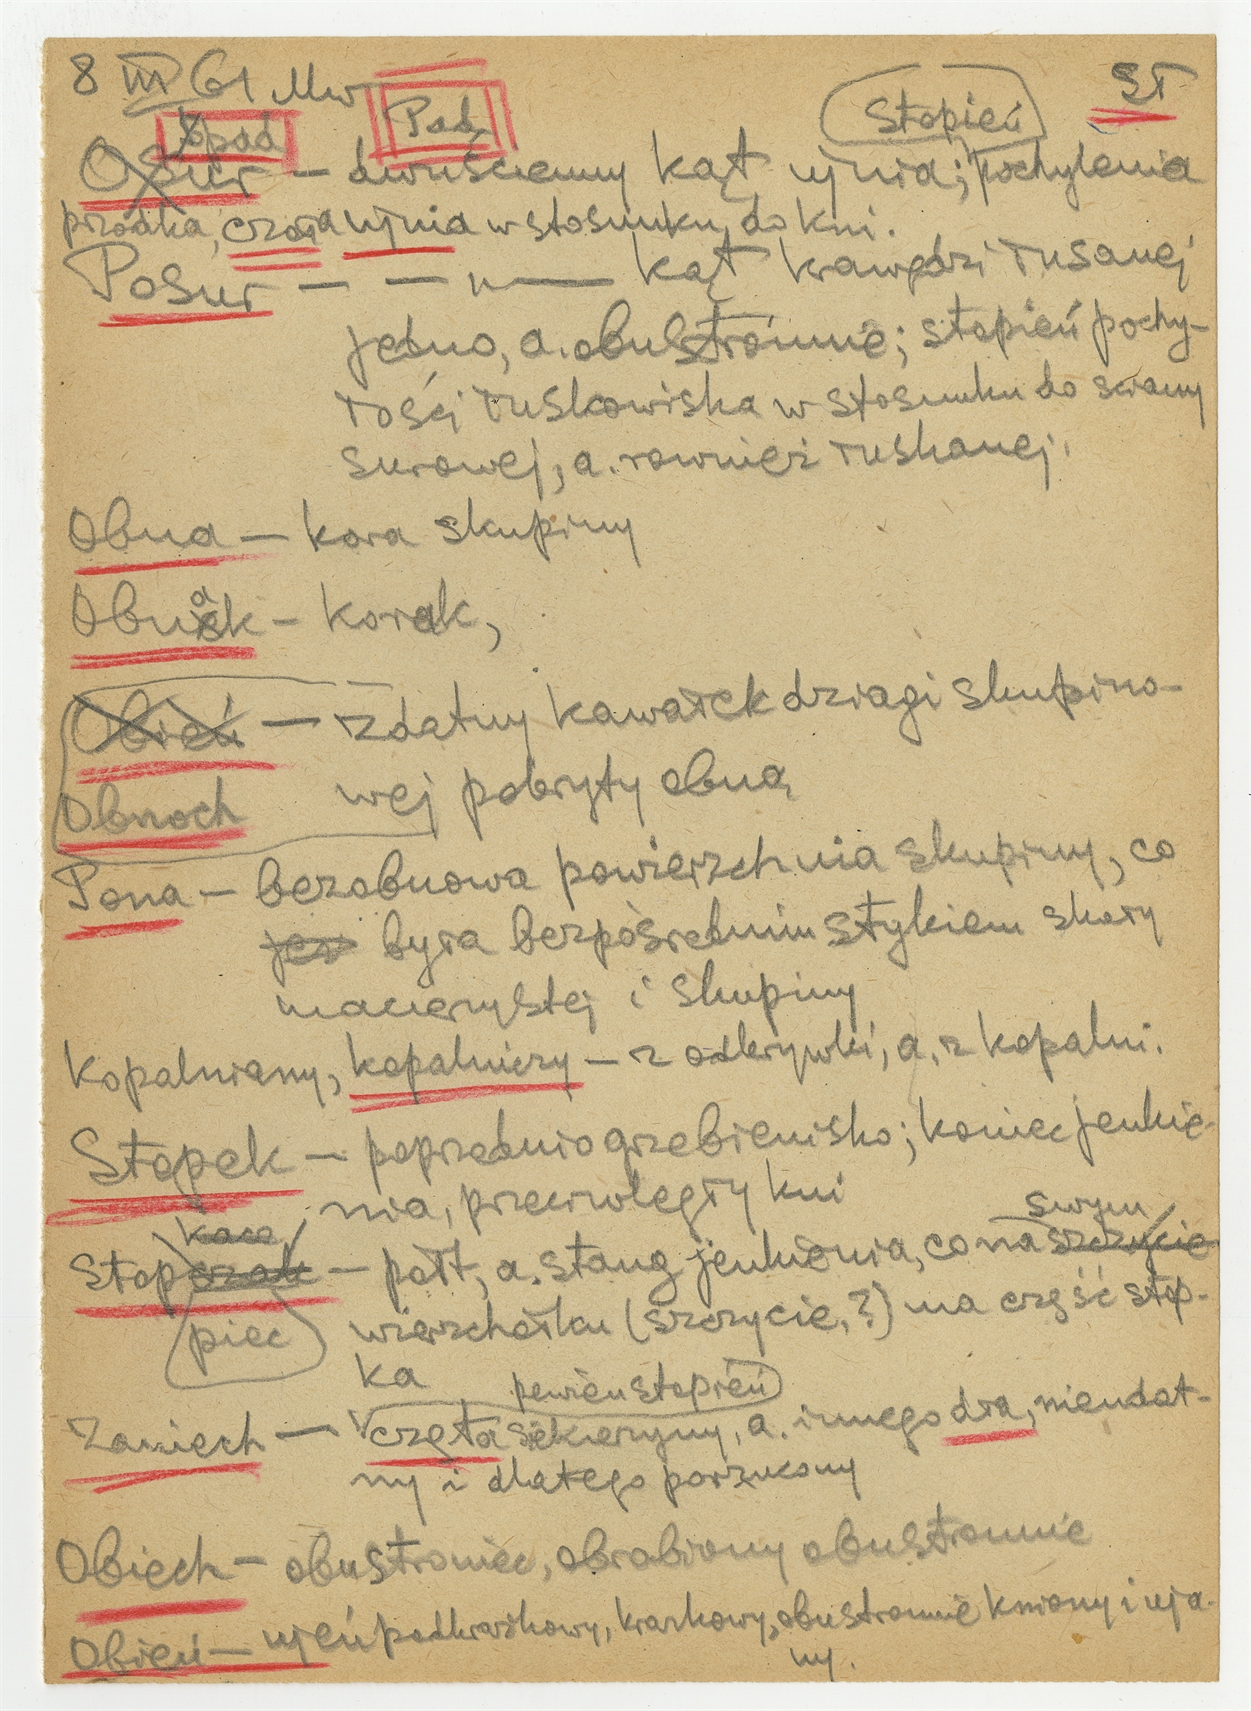 8 III 61 Mw
ST
Opad Pad Stopień
Osur – dwuścienny kąt ujnia; pochylenia
przodka, czoła ujnia w stosunku do kni.
Posur – — „ — kąt krawędzi łusanej
jedno, a. obustronnie; stopień pochy-
łości łuskowiska w stosunku do ściany
surowej, a. rownież łuskanej.
Obna – kora skupiny
Obnak – korak,
Obień – zdatny kawałek dziagi skupino-
wej pokryty obną
Obnoch
Pona – bezobnowa powierzchnia skupiny, co
jes była bezpośrednim stykiem skały
macierzystej i skupiny
Kopalniany, kopalniczy – z odkrywki, a. z kopalni.
Stopek – poprzednio grzebienisko; koniec jenkie-
nia, przeciwległy kni
kaca swym
Stopczak – półt, a. stang jenkienia, co na szczycie
piec wierzchołku (szczycie,?) ma część stop-
ka
pewien stopień
Zaniech – częta siekieryny, a. innego dła, nieudat-
ny i dlatego porzucony
Obiech – obustroniec, obrabiony obustronnie
Obień – ujeń podkraskowy, krzakowy, obustronnie kniony i uja-
ny.